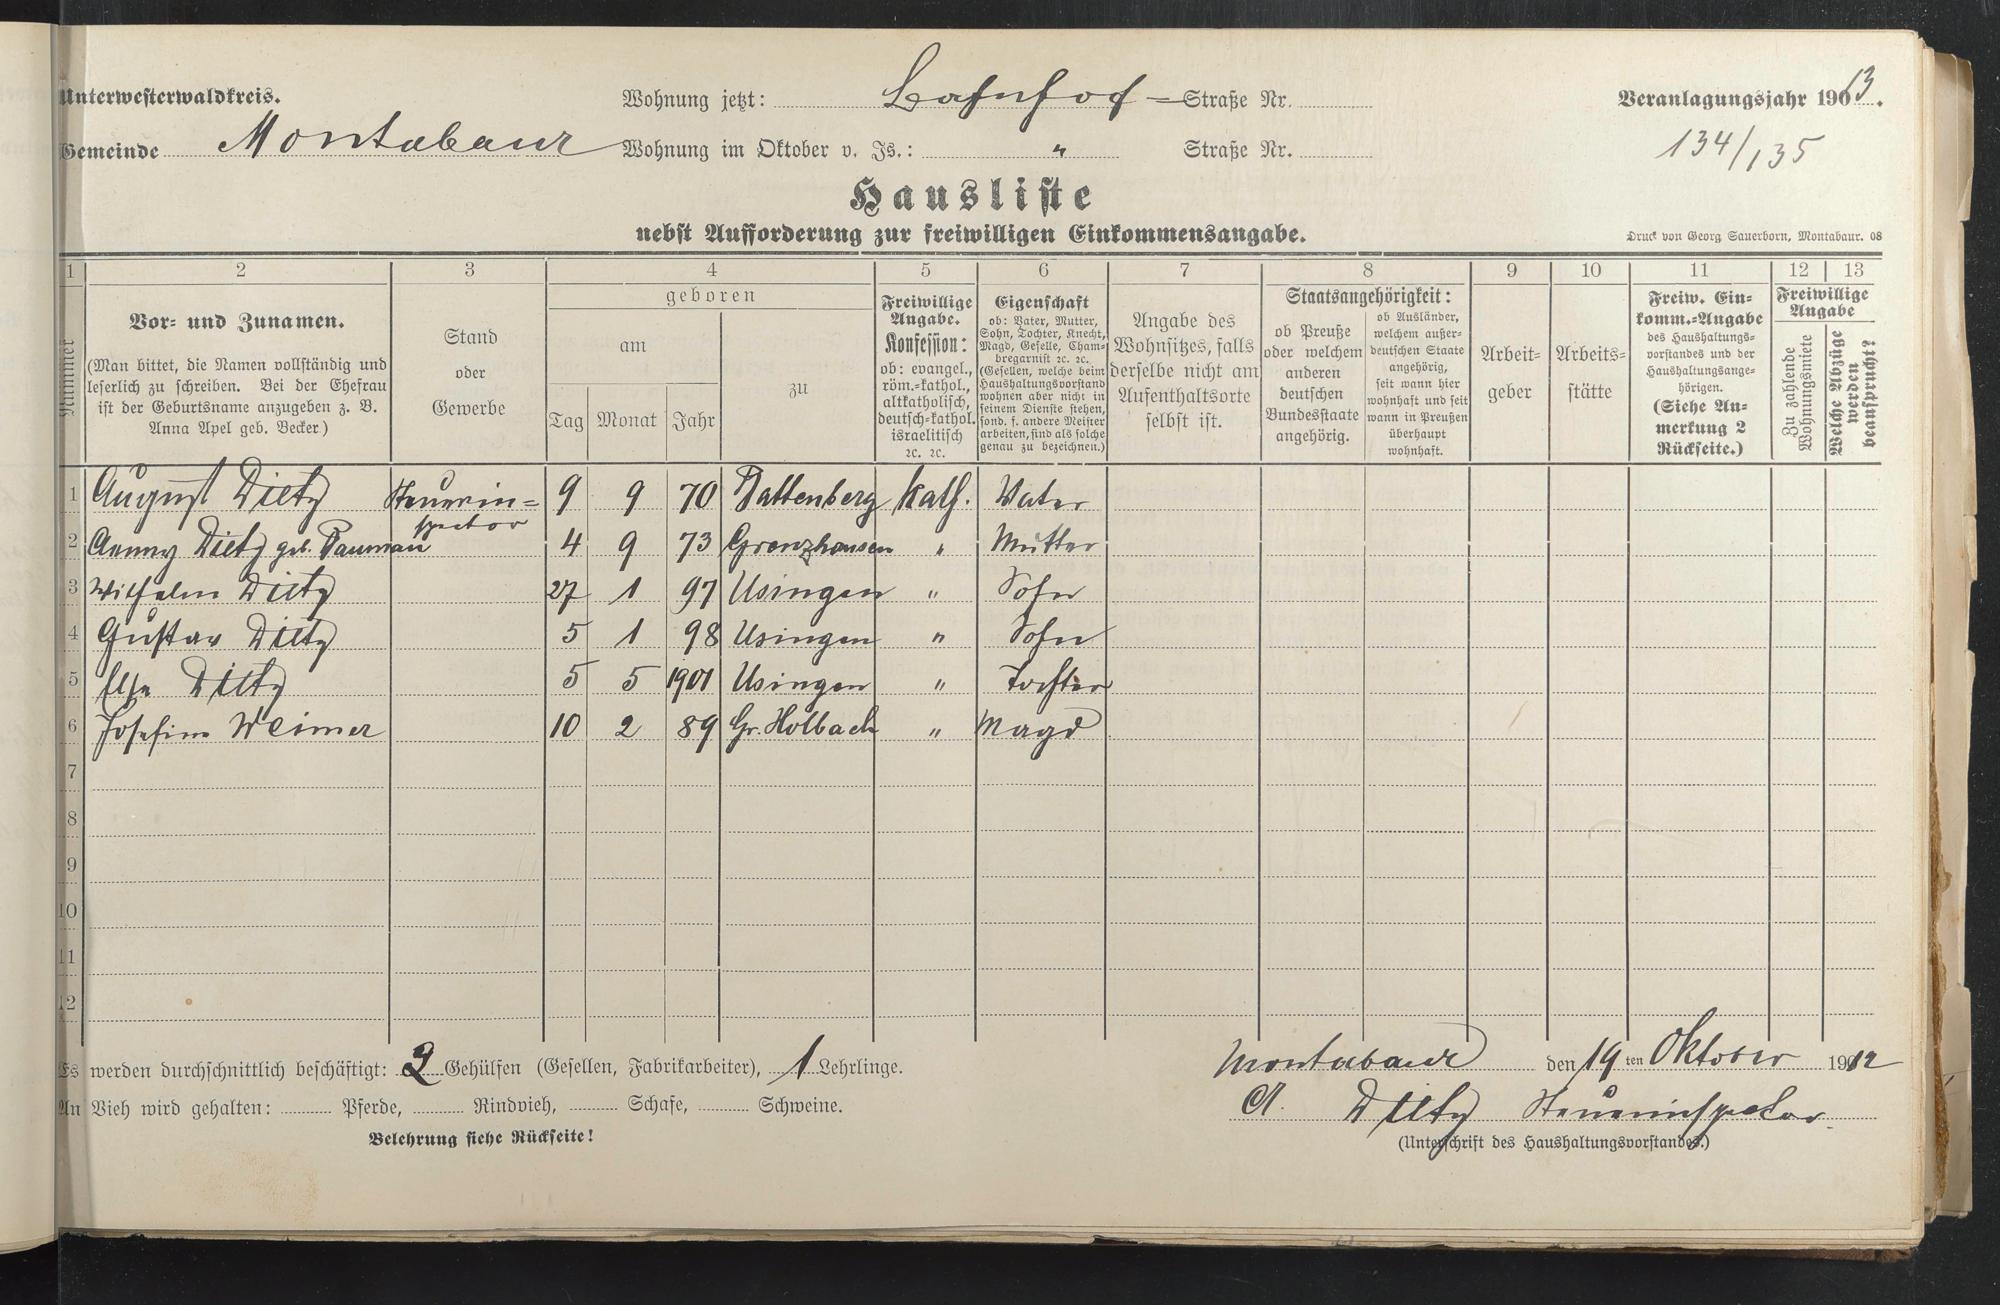 Unterwesterwaldkreis.
Wohnung jetzt: Bahnhof-Straße Nr.
Veranlagungsjahr 1913.
Gemeinde Montabaur
Wohnung im Oktober v. Js.: " Straße Nr.
134/135
Hausliste
nebst Aufforderung zur freiwilligen Einkommensangabe.
Druck von Georg Sauerborn, Montabaur. 08
1 2 3 4 5 6 7 8 9 10 11 12 13
Nummer
Vor- und Zunamen.
(Man bittet, die Namen vollständig und
leserlich zu schreiben. Bei der Ehefrau
ist der Geburtsname anzugeben z. B.
Anna Apel geb. Becker.)
Stand
oder
Gewerbe
geboren
am
Tag Monat Jahr
zu
Freiwillige
Angabe.
Konfession:
ob: evangel.,
röm.-kathol.,
altkatholisch,
deutsch-kathol.
israelitisch
ꝛc. ꝛc.
Eigenschaft
ob: Vater, Mutter,
Sohn, Tochter, Knecht,
Magd, Geselle, Cham-
bregarnist ꝛc. ꝛc.
(Gesellen, welche beim
Haushaltungsvorstand
wohnen aber nicht in
seinem Dienste stehen,
sond. f. andere Meister
arbeiten, sind als solche
genau zu bezeichnen.)
Angabe des
Wohnsitzes, falls
derselbe nicht am
Aufenthaltsorte
selbst ist.
Staatsangehörigkeit:
ob Preuße
oder welchem
anderen
deutschen
Bundesstaate
angehörig.
ob Ausländer,
welchem außer-
deutschen Staate
angehörig,
seit wann hier
wohnhaft und seit
wann in Preußen
überhaupt
wohnhaft.
Arbeit-
geber
Arbeits-
stätte
Freiw. Ein-
komm.-Angabe
des Haushaltungs-
vorstandes und der
Haushaltungsange-
hörigen.
(Siehe An-
merkung 2
Rückseite.)
Freiwillige
Angabe
Zu zahlende
Wohnungsmiete
Welche Abzüge
werden
beansprucht?
1 August Dietz Steuerin- 9 9 70 Dattenberg kath. Vater
spector
2 Aenny Dietz geb. Pauman 4 9 73 Grenzhausen " Mutter
3 Wilhelm Dietz 27 1 97 Usingen " Sohn
4 Gustav Dietz 5 1 98 Usingen " Sohn
5 Else Dietz 5 5 1901 Usingen " Tochter
6 Josefine Weimer 10 2 89 Gr. Holbach " Magd
7
8
9
10
11
12
Es werden durchschnittlich beschäftigt: 2 Gehülfen (Gesellen, Fabrikarbeiter), 1 Lehrlinge.
Montabaur den 19ten Oktober 1912
An Vieh wird gehalten: Pferde, Rindvieh, Schafe, Schweine.
A. Dietz Steuerinspector.
Belehrung siehe Rückseite!
(Unterschrift des Haushaltungsvorstandes.)